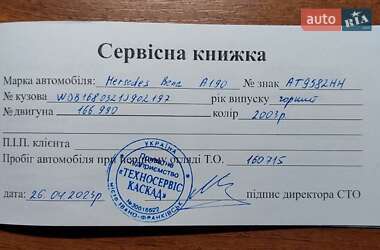 auto RIA.com
Сервісна книжка
Марка автомобіля: Mersedes Benz A190 № знак AT9582HH
№ кузова WDB1680321J902197 рік випуску чорний
№двигуна 166.990 колір 2003р
П.І.П. клієнта
Пробіг автомобіля при першому огляді Т.О. 160715
УКРАЇНА
"ТЕХНОСЕРВІС
КАСКАД"
ІВАНО-ФРАНКІВСЬК
дата: 26.04.2023р підпис директора СТО